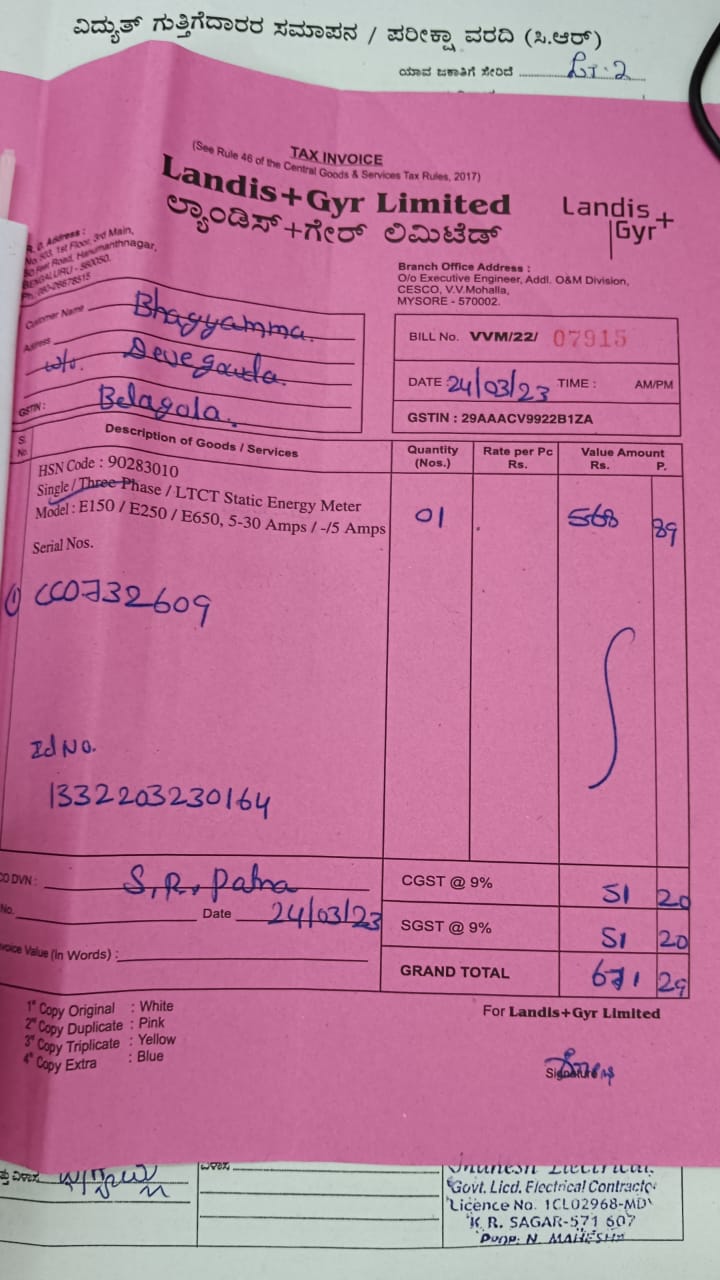 ವಿದ್ಯುತ್ ಗುತ್ತಿಗೆದಾರರ ಸಮಾಪನ / ಪರೀಕ್ಷಾ ವರದಿ (ಸಿ.ಆರ್)
ಯಾವ ಜಕಾತಿಗೆ ಸೇರಿದೆ
TAX INVOICE
(See Rule 46 of the Central Goods & Services Tax Rules, 2017)
Landis+Gyr Limited
ಲ್ಯಾಂಡಿಸ್+ಗೇರ್ ಲಿಮಿಟೆಡ್
Landis+
Gyr
R. O. Address :
No. 503, 1st Floor, 3rd Main,
50 Feet Road, Hanumanthnagar,
BENGALURU - 560050.
Ph.: 080-26678515
Branch Office Address :
O/o Executive Engineer, Addl. O&M Division,
CESCO, V.V.Mohalla,
MYSORE - 570002.
Customer Name Bhagyamma.
Address w/o Devegowda.
GSTIN : Belagola.
BILL No. VVM/22/ 07915
DATE : 24/03/23 TIME : AM/PM
GSTIN : 29AAACV9922B1ZA
Sl. No. Description of Goods / Services Quantity (Nos.) Rate per Pc Rs. Value Amount Rs. P.
HSN Code : 90283010
Single / Three Phase / LTCT Static Energy Meter
Model : E150 / E250 / E650, 5-30 Amps / -/5 Amps 01 568 89
Serial Nos.
① CC0732609
Id No.
1332203230164
CO DVN : S, R, Patna
CGST @ 9% 51 20
No. Date 24/03/23
SGST @ 9% 51 20
Invoice Value (In Words) :
GRAND TOTAL 671 29
1st Copy Original : White
2nd Copy Duplicate : Pink
3rd Copy Triplicate : Yellow
4th Copy Extra : Blue
For Landis+Gyr Limited
Signature
ವಿಳಾಸ
Electrical.
Govt. Licd. Electrical Contractor
Licence No. 1CL02968-MD
K. R. SAGAR-571 607
Prop: N. MAHESHA